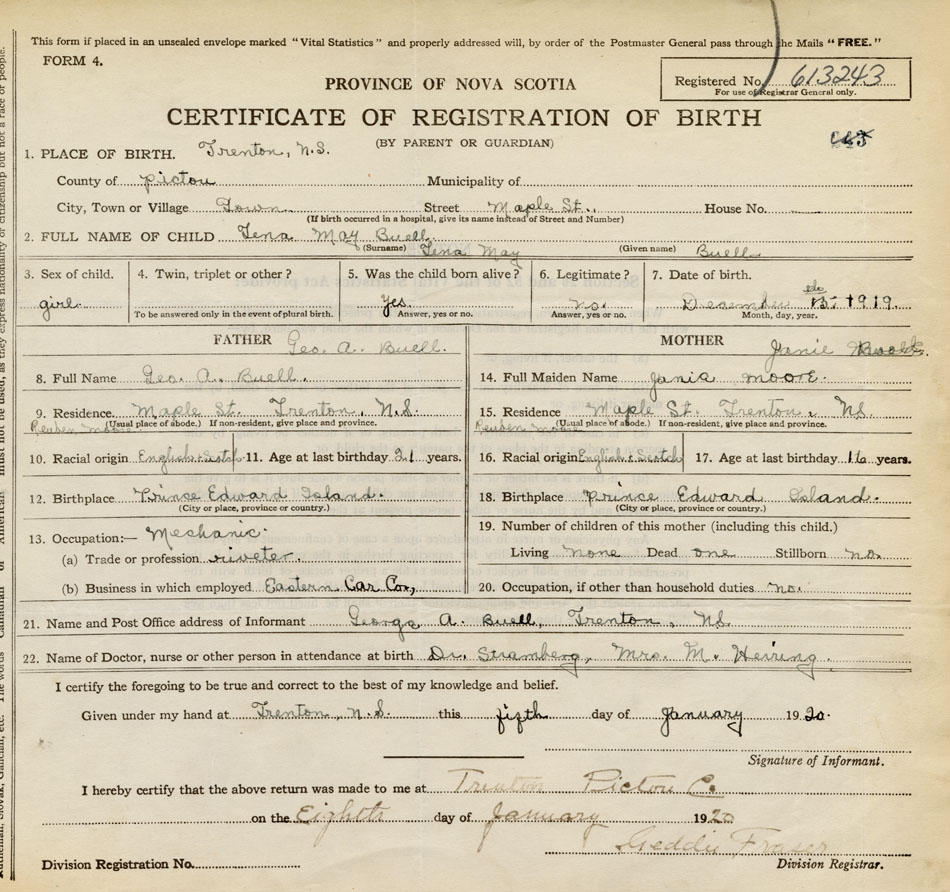 This form if placed in an unsealed envelope marked "Vital Statistics" and properly addressed will, by order of the Postmaster General pass through the Mails "FREE."
FORM 4.
PROVINCE OF NOVA SCOTIA
Registered No. 613243
For use of Registrar General only.
CERTIFICATE OF REGISTRATION OF BIRTH
(BY PARENT OR GUARDIAN)
1. PLACE OF BIRTH. Trenton, N.S.
County of Pictou Municipality of
City, Town or Village Town Street Maple St. House No.
(If birth occurred in a hospital, give its name instead of Street and Number)
2. FULL NAME OF CHILD Tena May Buell
(Surname) Tena May (Given name) Buell
3. Sex of child. 4. Twin, triplet or other? 5. Was the child born alive? 6. Legitimate? 7. Date of birth.
girl Yes. no. December 1919.
To be answered only in the event of plural birth. Answer, yes or no. Answer, yes or no. Month, day, year.
FATHER Geo. A. Buell. MOTHER Janie
8. Full Name Geo. A. Buell. 14. Full Maiden Name Janie Moore.
9. Residence Maple St. Trenton, N.S. 15. Residence Maple St. Trenton, NS.
Reuben Moore (Usual place of abode.) If non-resident, give place and province. Reuben Moore (Usual place of abode.) If non-resident, give place and province.
10. Racial origin English & Scotch 11. Age at last birthday 21 years. 16. Racial origin English & Scotch 17. Age at last birthday 16 years.
12. Birthplace Prince Edward Island. 18. Birthplace Prince Edward Island.
(City or place, province or country.) (City or place, province or country.)
13. Occupation:— Mechanic 19. Number of children of this mother (including this child.)
(a) Trade or profession riveter. Living none Dead one Stillborn no.
(b) Business in which employed Eastern Car Co., 20. Occupation, if other than household duties no.
21. Name and Post Office address of Informant George A. Buell, Trenton, NS.
22. Name of Doctor, nurse or other person in attendance at birth Dr. Stramberg, Mrs. M. Heiring.
I certify the foregoing to be true and correct to the best of my knowledge and belief.
Given under my hand at Trenton, N.S. this fifth day of January 1920.
Signature of Informant.
I hereby certify that the above return was made to me at Trenton Pictou C.
on the Eighth day of January 1920
Geddie Fraser
Division Registration No. Division Registrar.